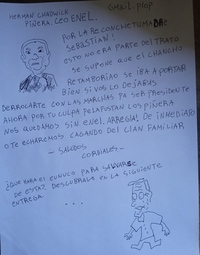 HERMAN CHADWICK
PIÑERA, CEO ENEL.
POR LA RECONCHETUMADRE
SEBASTIAN!
ESTO NO ERA PARTE DEL TRATO
SE SUPONE QUE EL CHANCHO
SE IBA A PORTAR
BIEN, SI VOS LO DEJABAS
DERROCARTE CON LAS MARCHAS YA SER PRESIDENTE
AHORA POR TU CULPA LOS PIÑERA
NOS QUEDAMOS SIN ENEL. ARREGLA! DE INMEDIATO
O TE ECHAREMOS CAGANDO DEL CLAN FAMILIAR
- SALUDOS
CORDIALES -
¿QUE HARA EL EUNUCO PARA SALVARSE
DE ESTA? DESCUBRALO EN LA SIGUIENTE
ENTREGA
...